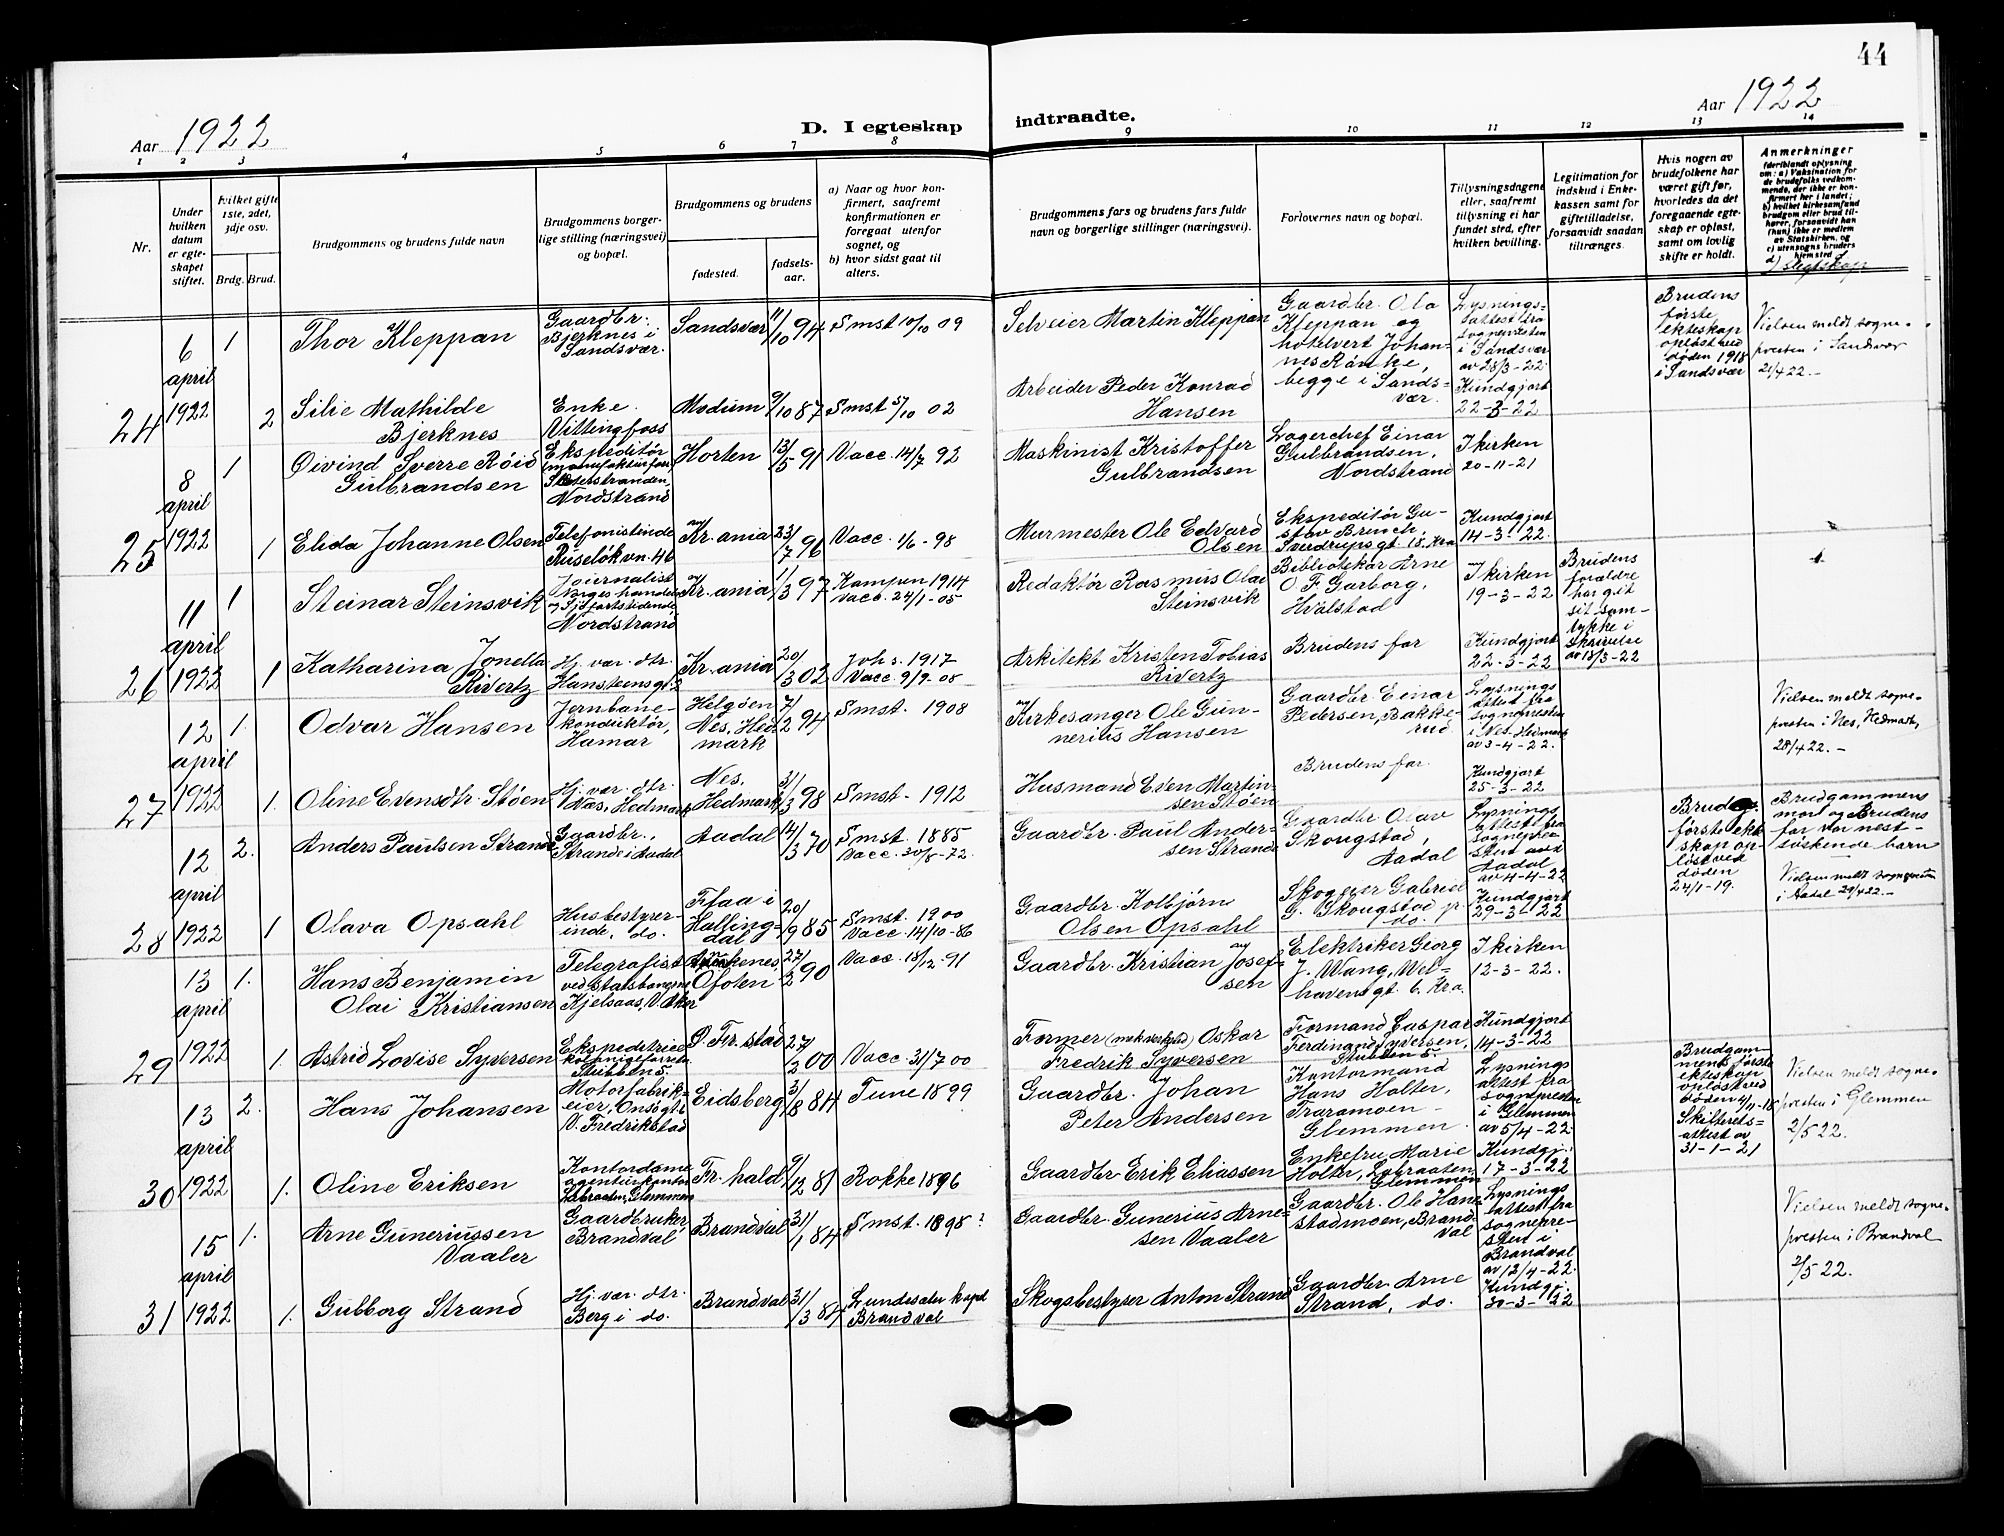 44
Aar 1922
D. I egteskap
indtraadte.
Aar 1922
1 2 3 4 5 6 7 8 9 10 11 12 13 14
Nr.
Under
hvilken
datum
er egte-
skapet
stiftet.
hvilket gifte
1ste, 2det,
3dje osv.
Brdg. Brud.
Brudgommens og brudens fulde navn
Brudgommens borger-
lige stilling (næringsvei)
og bopæl.
Brudgommens og brudens
fødested.
fødsels-
aar.
a) Naar og hvor kon-
firmert, saafremt
konfirmationen er
foregaat utenfor
sognet, og
b) hvor sidst gaat til
alters.
Brudgommens fars og brudens fars fulde
navn og borgerlige stillinger (næringsvei).
Forlovernes navn og bopæl.
Tillysningsdagene
eller, saafremt
tillysning ei har
fundet sted, efter
hvilken bevilling.
Legitimation for
indskud i Enke-
kassen samt for
giftetilladelse,
forsaavidt saadan
tiltrænges.
Hvis nogen av
brudefolkene har
været gift før,
hvorledes da det
foregaaende egte-
skap er opløst,
samt om lovlig
skifte er holdt.
Anmerkninger
(deriblandt oplysning
om: a) Vaksination for
de brudefolks vedkom-
mende, der ikke er kon-
firmert her i landet;
b) hvilket kirkesamfund
brudgom eller brud til-
hører, forsaavidt han
(hun) ikke er medlem
av Statskirken, og
c) utensogns bruders
hjemsted
d) Slegtskap
24
6
april
1922
1
Thor Kleppan
Gaardbr.
Bjerknes i
Sandsvær.
Sandsvær
11/10 94
Smst 10/10 09
Selveier Martin Kleppan
Gaardbr. Ola
Kleppan og
hotelvert Johan-
nes Rånke,
begge i Sands-
vær.
Lysnings-
attest fra
sognepresten
i Sandsvær
av 28/3-22.
Brudens
første
ekteskap
opløst ved
døden 1918
i Sandsvær
Vielsen meldt sogne-
presten i Sandsvær
21/4 22.-
2
Silie Mathilde
Bjerknes
Enke.
Vittingfoss
Modum
9/10 87
Smst 5/10 02
Arbeider Peder Konrad
Hansen
Kundgjort
22-3-22
25
8
april
1922
1
Øivind Sverre Röid
Gulbrandsen
Ekspeditör
i manufakturforr.
Nordstrand
Horten
13/5 91
Vacc. 14/7 92
Maskinist Kristoffer
Gulbrandsen
Lagerchef Einar
Gulbrandsen,
Nordstrand
I kirken
20-11-21
1
Elida Johanne Olsen
Telefonistinde
Ruseløkvn. 46
Kr.ania
23/7 96
Vacc. 1/6-98
Murmester Ole Edvard
Olsen
Ekspeditör Gu-
stav Bruuch,
Sverdrupsgt. 18. Kra
Kundgjort
14-3-22.
26
11
april
1922
1
Steinar Steinsvik
Journalist
Norges handels
og Sjøfartstidende,
Nordstrand
Kr.ania
11/3 97
Kampen 1914
Vacc. 24/1-05
Redaktör Rasmus Olai
Steinsvik
Bibliotekar Arne
O F. Garborg,
Hvalstad
I kirken
19-3-22
Brudens
forældre
har git
sit sam-
tykke i
skrivelse
av 18/3-22
1
Katharina Jonetta
Rivertz
Hj. vær. dtr.
Hansteensgt. 2
Kr.ania
20/3 02
Johs. 1917
Vacc. 9/9-08
Arkitekt Kristen Tobias
Rivertz
Brudens far
Kundgjort
22-3-22
27
12
april
1922
1.
Odvar Hansen
Jernbane-
konduktör,
Hamar
Helgöen
Nes, Hed-
mark
7/2 94
Smst. 1908
Kirkesanger Ole Gun-
nerius Hansen
Gaardbr. Einar
Pedersen, Bakke-
rud
Lysnings
attest fra
sognepresten
i Nes, Hedmark
av 3-4-22.
Vielsen meldt sogne-
presten i Nes, Hedmark,
28/4 22.-
1.
Oline Evensdtr. Støen
Hj. vær. dtr.
Nes, Hedmark
Nes,
Hedmark
31/3 98
Smst. 1912
Husmand Even Martin-
sen Støen
Brudens far.
Kundgjort
25-3-22.
28
12
april
1922
2.
Anders Paulsen Strande
Gaardbr.,
Strande i Aadal
Aadal
14/3 70
Smst. 1885
Vacc. 30/8-72.
Gaardbr. Paul Ander-
sen Strande
Gaardbr Olav
Skougstad,
Aadal
Lysnings
attest fra
sognepre-
sten avd
Aadal
av 4-4-22
første ekte-
skap op-
løst ved
døden
24/1-19.
Brudgommens
mor og Brudens
far var nest-
søskende barn
Vielsen meldt sognepresten
i Aadal 29/4 22.-
1
Olava Opsahl
Husbestyrer-
inde, do.
Flaa i
Halling-
dal
20/9 85
Smst. 1900
Vacc. 14/10-86
Gaardbr. Kolbjørn
Olsen Opsahl
Skogeier Gabriel
G. Skougstad p.
do.
Kundgjort
29-3-22
29
13
april
1922
1.
Hans Benjamin
Olai Kristiansen
Telegrafist
ved statsbanerne
Kjelsaas, V. Aker
Ankenes,
Ofoten
27/2 90
Vacc 18/12-91
Gaardbr. Kristian Josef-
sen
Elektriker Georg
J. Wang, Wel-
havensgt. 6. Kra.
I kirken
12-3-22.
1.
Astrid Lovise Syversen
Ekspeditrice
kolonialforretn.
Stubben 5
Ø. Fr. stad
27/2 00
Vacc 31/7 00
Former (mek. verksted) Oskar
Fredrik Syversen
Formand Caspar
Ferdinand Syversen,
Stubben 5.
Kundgjort
14-3-22
30
13
april
1922
2.
Hans Johansen
Motorfabrik-
eier, Onsögt. 6
V. Fredrikstad
Eidsberg
3/8 84
Tune 1899
Gaardbr. Johan
Peter Andersen
Kontormand
Hans Holter,
Traramoen -
Glemmen.
Lysnings
attest fra
sognepresten
i Glemmen
av 5/4-22.
Brudgom-
mens første
ekteskap
opløst ved
döden 4/11-18
Skifterets-
attest av
31-1-21
Vielsen meldt sogne-
presten i Glemmen
2/5 22.
1.
Oline Eriksen
Kontordame
agenturkontor
Labraaten, Glemmen
Fr.hald
9/12 81
Rokke 1896
Gaardbr Erik Eliassen
Enkefru Marie
Holter, Labraaten,
Glemmen
Kundgj.
17-3-22
31
15
april
1922
1.
Arne Guneriussen
Vaaler
Gaardbruker,
Brandval
Brandval
31/1 84
Smst. 1898?
Gaardbr. Gunerius Arne-
sen Vaaler
Gaardbr. Ole Hane-
stadmoen, Brand-
val
Lysnings
attest fra
sognepre-
sten i
Brandval
av 12/4-22.
Vielsen meldt sogne-
presten i Brandval
2/5 22.
1.
Gubborg Strand
Hj. vær. dtr.
Berg i do.
Brandval
31/3 84
Lundesæter kapel
Brandval
Skogsbestyrer Anton Strand
Gaardbr. Arne
Strand, do.
Kundgj.
30-3-1922